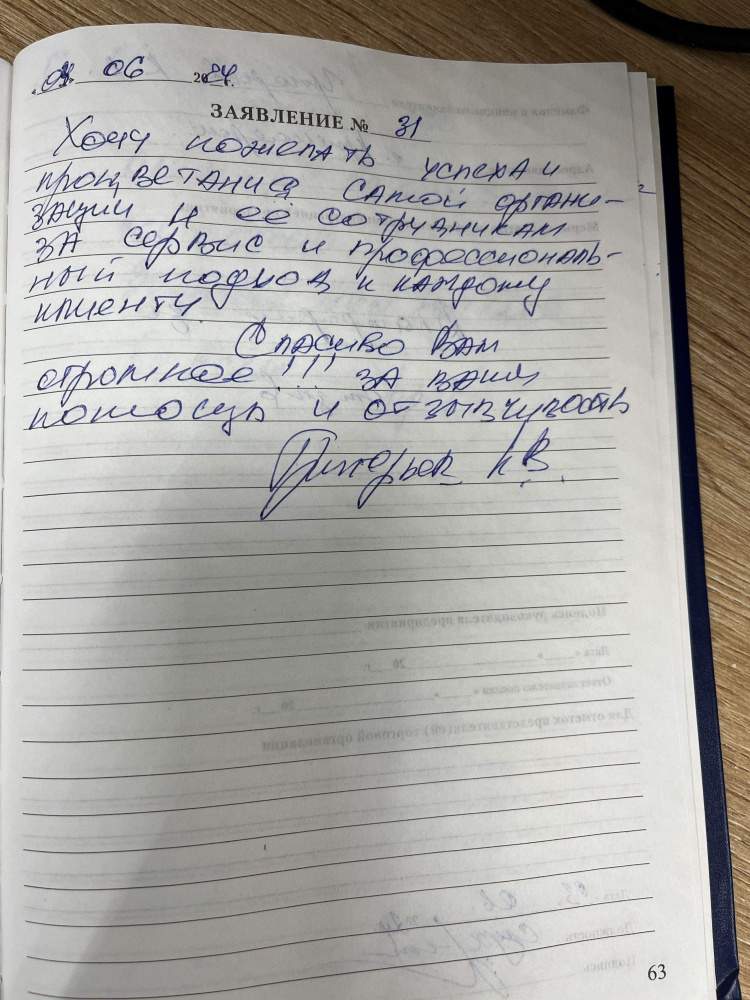 06 2024.
ЗАЯВЛЕНИЕ № 31
Хочу пожелать успеха и
процветания самой органи-
зации и её сотрудникам
за сервис и профессиональ-
ный подход к каждому
клиенту.
Спасибо Вам
огромное!!! за вашу
помощь и отзывчивость
63